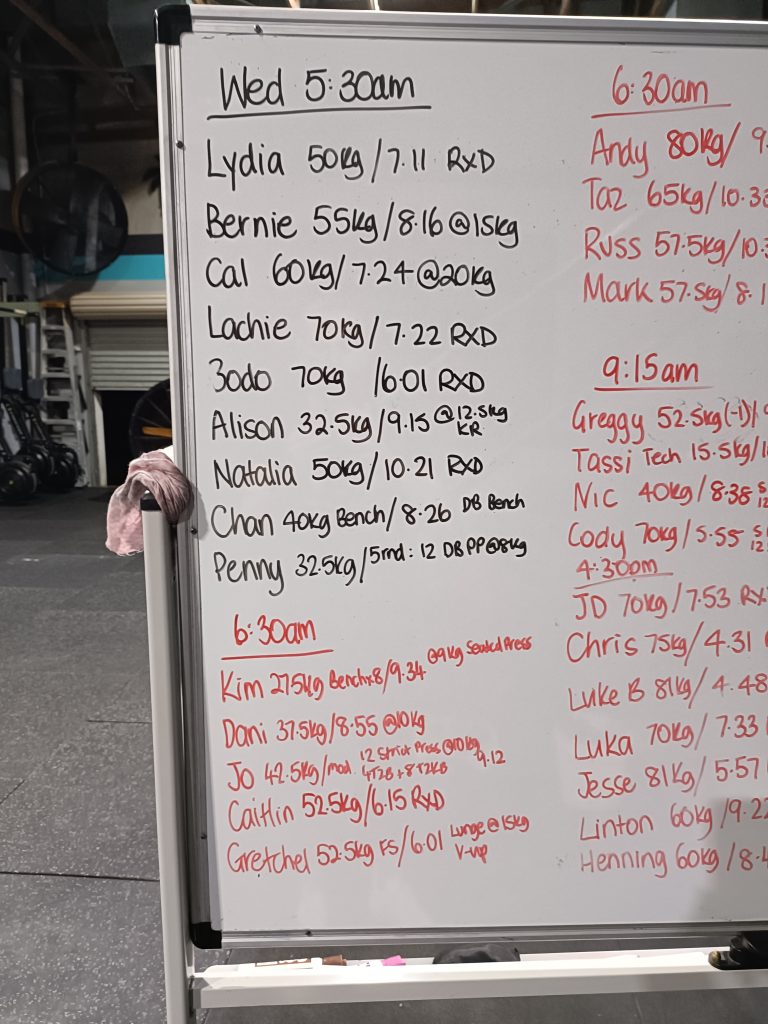 Wed 5:30am
Lydia 50kg/7.11 RXD
Bernie 55kg/8.16 @15kg
Cal 60kg/7.24 @20kg
Lachie 70kg/7.22 RXD
Bodo 70kg /6.01 RXD
Alison 32.5kg/9.15 @12.5kg KR
Natalia 50kg/10.21 RXD
Chan 40kg Bench/8.26 DB Bench
Penny 32.5kg/5rnd: 12 DBPP@8kg
6:30am
Kim 27.5kg Benchx8/9.34 @9kg Seated Press
Dani 37.5kg/8.55 @10kg
Jo 42.5kg/mod. 12 Strict Press @10kg 9.12
4T2B+8T2KB
Caitlin 52.5kg/6.15 RXD
Gretchel 52.5kg FS/6.01 Lunge @15kg
V-up
6:30am
Andy 80kg/9.
Taz 65kg/10.3
Russ 57.5kg/10.
Mark 57.5kg/8.1
9:15am
Greggy 52.5kg(-1)/
Tassi Tech 15.5kg/1
Nic 40kg/8.38 S
12
Cody 70kg/5.55 S
12
4:30pm
JD 70kg/7.53 RX
Chris 75kg/4.31
Luke B 81kg/4.48
Luka 70kg/7.33
Jesse 81kg/5.57
Linton 60kg/9.22
Henning 60kg/8.4